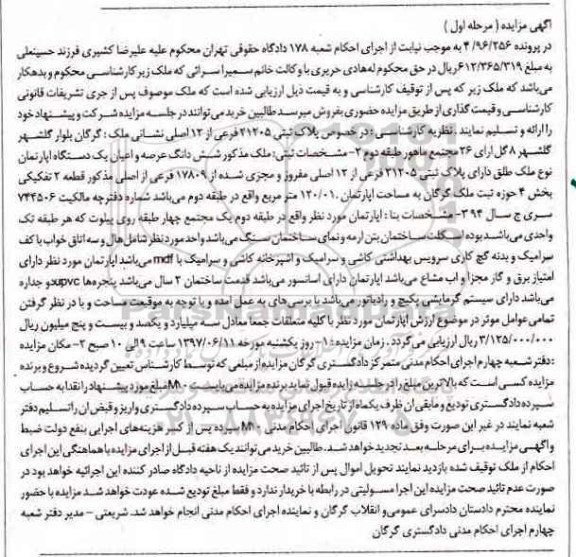 آگهی مزایده ( مرحله اول )
در پرونده ۴/۹۶/۲۵۶ به موجب نیابت از اجرای احکام شعبه ۱۷۸ دادگاه حقوقی تهران محکوم علیه علیرضا کشیری فرزند حسینعلی
به مبلغ ۶۱۲/۳۶۵/۳۱۹ریال در حق محکوم له‌هادی حریری با وکالت خانم سمیرا سرائی که ملک زیر کارشناسی محکوم و بدهکار
می‌باشد که ملک زیر که پس از توقیف کارشناسی و به قیمت ذیل ارزیابی شده است که ملک موصوف پس از جری تشریفات قانونی
کارشناسی و قیمت گذاری از طریق مزایده حضوری بفروش میرسد طالبین خرید می‌توانند در جلسه مزایده شرکت و پیشنهاد خود
را ارائه و تسلیم نمایند . نظریه کارشناسی : در خصوص پلاک ثبتی ۲۱۲۰۵ فرعی از ۱۲ اصلی نشانی ملک : گرگان بلوار گلشهر
گلشهر ۸ گل ارای ۲۶ مجتمع ماهور طبقه دوم ۲- مشخصات ثبتی: ملک مذکور شش دانگ عرصه و اعیان یک دستگاه آپارتمان
نوع ملک طلق دارای پلاک ثبتی ۲۱۲۰۵ فرعی از ۱۲ اصلی مفروز و مجزی شده از ۱۷۸۰۹ فرعی از اصلی مذکور قطعه ۲ تفکیکی
بخش ۴ حوزه ثبت ملک گرگان به مساحت آپارتمان ۱۲۰/۰۱ متر مربع واقع در طبقه دوم می‌باشد شماره دفترچه مالکیت ۷۴۴۵۰۶
سری ج سال ۹۴ ۳- مشخصات بنا : آپارتمان مورد نظر واقع در طبقه دوم یک مجتمع چهار طبقه روی پیلوت که هر طبقه تک
واحدی می‌باشد بوده اسکلت ساختمان بتن آرمه و نمای ساختمان سنگ می‌باشد واحد مورد نظر شامل هال و سه اتاق خواب با کف
سرامیک و بدنه گچ کاری سرویس بهداشتی کاشی و سرامیک و آشپزخانه کاشی و سرامیک با mdf می‌باشد آپارتمان مورد نظر دارای
امتیاز برق و گاز مجزا و آب مشاع می‌باشد آپارتمان دارای آسانسور می‌باشد قدمت ساختمان ۲ سال می‌باشد پنجره‌ها upvc دو جداره
می‌باشد دارای سیستم گرمایشی پکیج و رادیاتور می‌باشد با بررسی‌های به عمل آمده و با توجه به موقیعت مساحت و با در نظر گرفتن
تمامی عوامل موثر در موضوع ارزش آپارتمان مورد نظر با کلیه متعلقات جمعا معادل سه میلیارد و یکصد و بیست و پنج میلیون ریال
۳/۱۲۵/۰۰۰/۰۰۰ ریال ارزیابی می‌گردد . زمان مزایده : ۱- روز یکشنبه مورخه ۱۳۹۷/۰۶/۱۱ ساعت ۹ الی ۱۰ صبح ۲- مکان مزایده
:دفتر شعبه چهارم اجرای احکام مدنی متمرکز دادگستری گرگان مزایده از مبلغی که توسط کارشناس تعیین گردیده شروع و برنده
مزایده کسی است که بالاترین مبلغ را در جلسه مزایده قبول نماید برنده مزایده می‌بایست ۱۰% مبلغ مورد پیشنهاد را نقدا به حساب
سپرده دادگستری تودیع و مابقی آن ظرف یکماه از تاریخ اجرای مزایده به حساب سپرده دادگستری واریز و قبض آن را تسلیم دفتر
شعبه نمایند در غیر این صورت وفق ماده ۱۲۹ قانون اجرای احکام مدنی ۱۰% سپرده پس از کسر هزینه‌های اجرایی بنفع دولت ضبط
و آگهی مزایده برای مرحله بعد تجدید خواهد شد. طالبین خرید می‌توانند یک هفته قبل از اجرای مزایده با هماهنگی این اجرای
احکام از ملک توقیف شده بازدید نمایند تحویل اموال پس از تائید صحت مزایده از ناحیه دادگاه صادر کننده این اجرائیه خواهد بود در
صورت عدم تائید صحت مزایده این اجرا مسولیتی در رابطه با خریدار ندارد و فقط مبلغ تودیع شده عودت خواهد شد مزایده با حضور
نماینده محترم دادستان دادسرای عمومی و انقلاب گرگان و نماینده اجرای احکام مدنی انجام خواهد شد. شریعتی – مدیر دفتر شعبه
چهارم اجرای احکام مدنی دادگستری گرگان